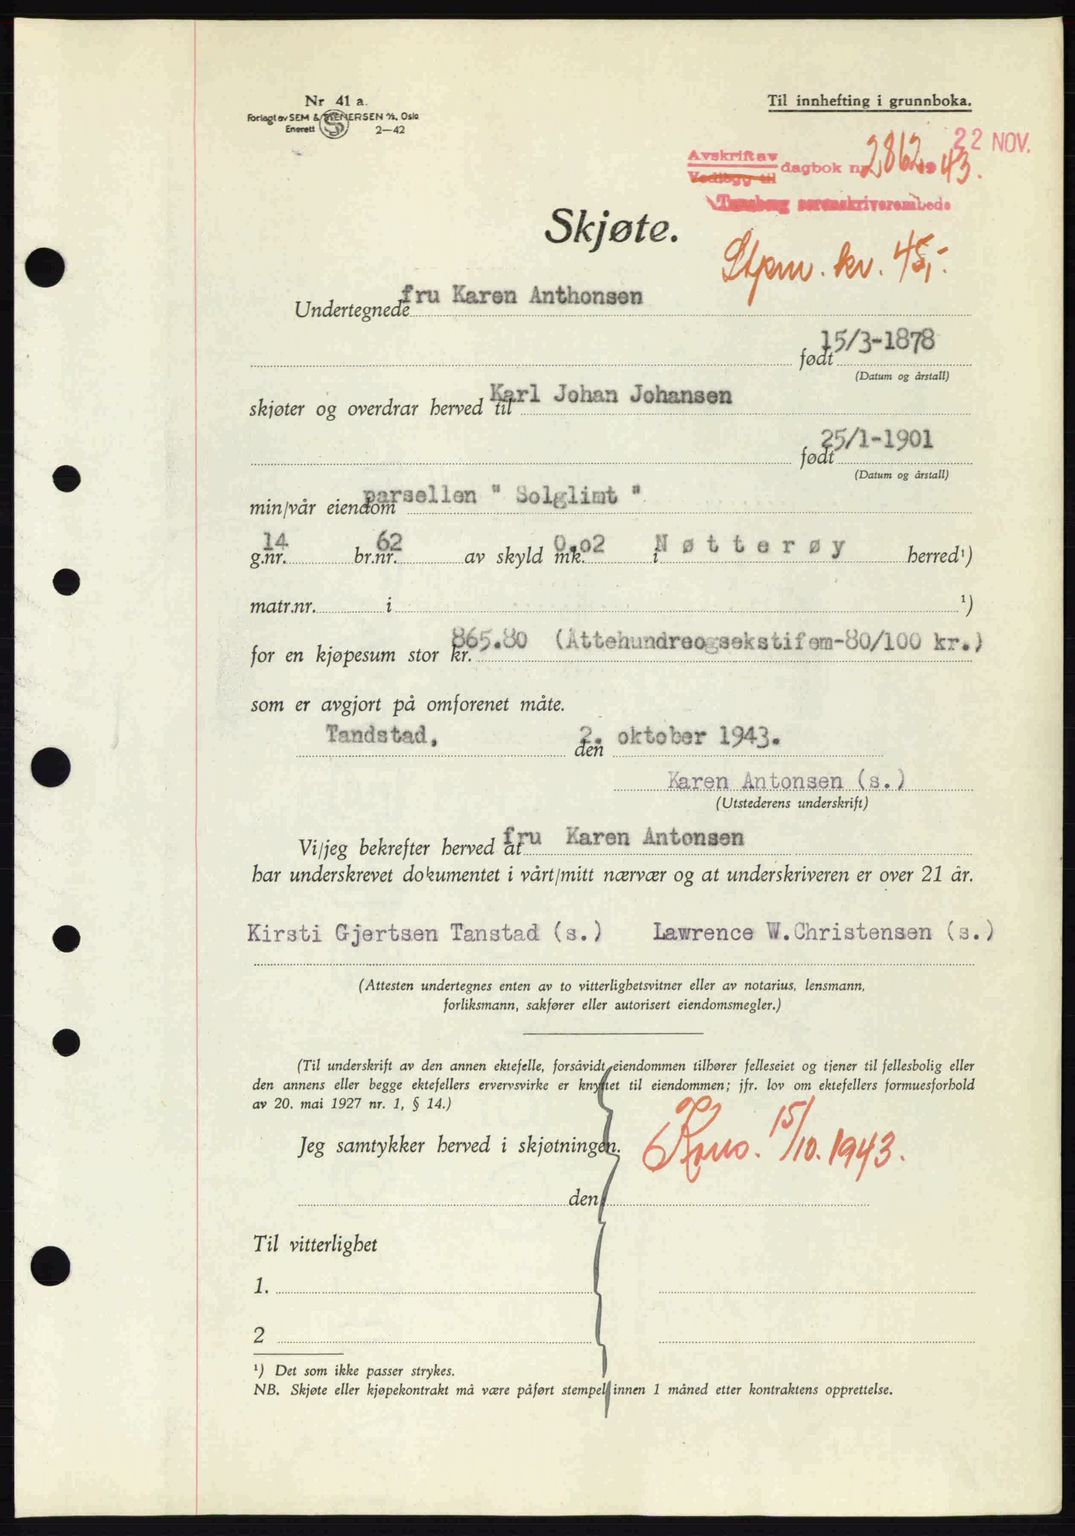 Nr 41 a.
Forlagt av SEM & STENERSEN A/S, Oslo
Enerett 2—42
Til innhefting i grunnboka.
22 NOV.
Avskrift av
Vedlegg til
dagbok nr. 2862 1943.
Tønsberg sorenskriverembede
Skjøte.
Stpm. kr. 45,-
Undertegnede fru Karen Anthonsen
født 15/3-1878
(Datum og årstall)
skjøter og overdrar herved til Karl Johan Johansen
født 25/1-1901
(Datum og årstall)
min/vår eiendom parsellen " Solglimt "
g.nr. 14 br.nr. 62 av skyld mk. 0.02 i Nøtterøy herred¹)
matr.nr. i ¹)
for en kjøpesum stor kr. 865.80 (Åttehundreogsekstifem-80/100 kr.)
som er avgjort på omforenet måte.
Tandstad, den 2. oktober 1943.
Karen Antonsen (s.)
(Utstederens underskrift)
Vi/jeg bekrefter herved at fru Karen Antonsen
har underskrevet dokumentet i vårt/mitt nærvær og at underskriveren er over 21 år.
Kirsti Gjertsen Tanstad (s.) Lawrence W.Christensen (s.)
(Attesten undertegnes enten av to vitterlighetsvitner eller av notarius, lensmann,
forliksmann, sakfører eller autorisert eiendomsmegler.)
(Til underskrift av den annen ektefelle, forsåvidt eiendommen tilhører felleseiet og tjener til fellesbolig eller
den annens eller begge ektefellers ervervsvirke er knyttet til eiendommen; jfr. lov om ektefellers formuesforhold
av 20. mai 1927 nr. 1, § 14.)
Jeg samtykker herved i skjøtningen.
15/10. 1943.
den
Til vitterlighet
1.
2
¹) Det som ikke passer strykes.
NB. Skjøte eller kjøpekontrakt må være påført stempel innen 1 måned etter kontraktens opprettelse.